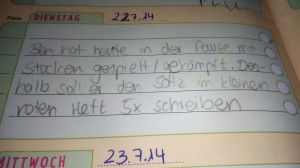 DIENSTAG 22.7.14
Ben hat heute in der Pause mit
Stöcken gespielt/gekämpft. Des-
halb soll er den Satz im kleinen
roten Heft 5x schreiben
MITTWOCH 23.7.14